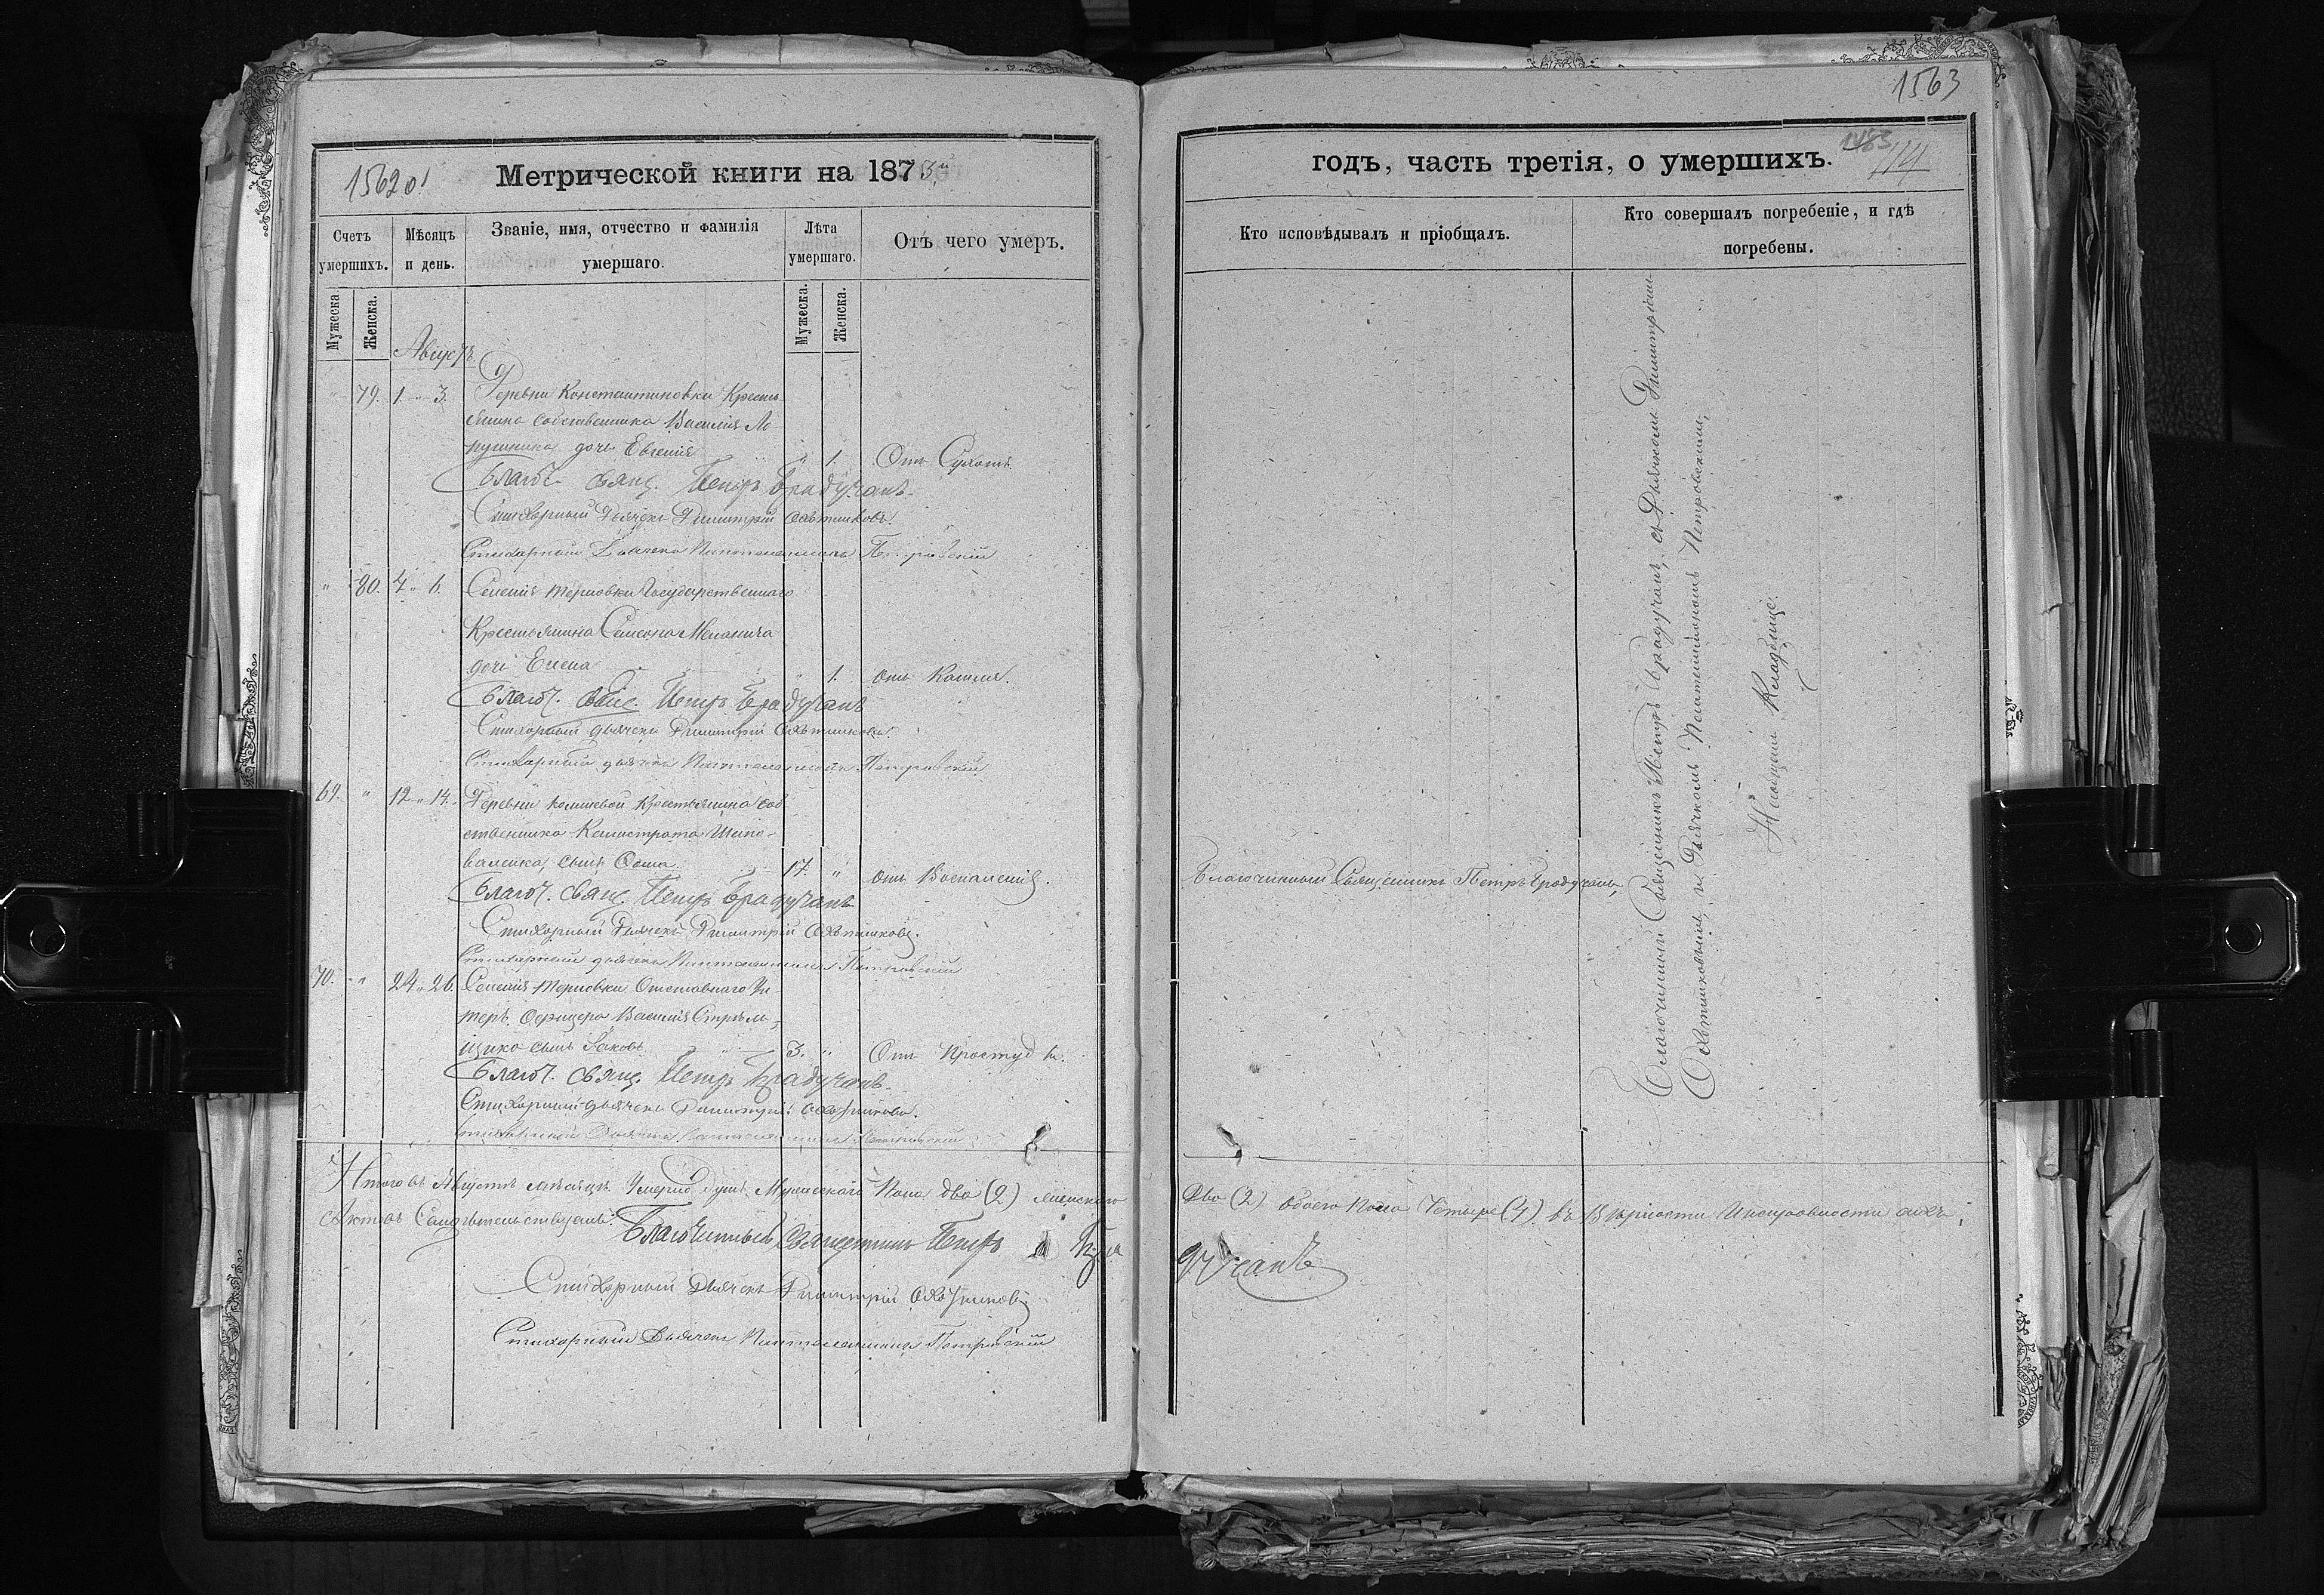 1562 об
Метрической книги на 1875й
Счетъ умершихъ.
Мѣсяцъ и день.
Званіе, имя, отчество и фамилія умершаго.
Лѣта умершаго.
Отъ чего умеръ.
Мужеска.
Женска.
Мужеска.
Женска.
Августъ.
" 79. 1. " 3. Деревни Константиновки Кресть
янина собственника Василія
дочь Евгенія " 1. Отъ Сухотъ
Благоч. свящ. Петръ Брадучанъ.
Стихарный Дьячекъ Димитрій Охотниковъ.
Стихарный Дьячекъ Пантелеимонъ Петровскій
" 80. 4. " 6. Селенія Терновки Государственнаго
Крестьянина Семеона
дочь Елена " 1. отъ Кашля.
Благоч. свящ. Петръ Брадучанъ
Стихарный дьячекъ Димитрій Охотниковъ.
Стихарный дьячекъ Пантелеимонъ Петровскій
69. " 12 " 14. Деревни крестьянина соб
ственника Калистрата Шапо-
валенка, сынъ Ѳома. 17. " отъ Воспаленія.
Благоч. свящ. Петръ Брадучанъ
Стихарный Дьячекъ Димитрій Охотниковъ.
Стихарный дьячекъ Пантелеимонъ Петровскій
70. " 24 " 26. Селенія Терновки Отставнаго Ун
теръ Офицера Василія
сынъ Іаковъ 3. " Отъ Простуды.
Благоч. свящ. Петръ Брадучанъ.
Стихарный дьячекъ Димитрій Охотниковъ.
Стихарный Дьячекъ Пантелеимонъ Петровскій
Итого въ Августѣ мѣсяцѣ Умерло душъ Мужескаго Пола два (2) женскаго
Актовъ Свидѣтельствуемъ:
Благочинный Священникъ Петръ Бра
Стихарный Дьячекъ Димитрій Охотниковъ
Стихарный Дьячекъ Пантелеимонъ Петровскій
1563
1483
114
годъ, часть третія, о умершихъ.
Кто исповѣдывалъ и пріобщалъ.
Кто совершалъ погребеніе, и гдѣ
погребены.
Благочинный Священникъ Петръ Брадучанъ,
Благочинный Священникъ Петръ Брадучанъ, съ Дьячкомъ Димитріемъ
Охотниковымъ, и Дьячкомъ Пантелеимономъ Петровскимъ,
На общемъ Кладбищѣ.
Два (2) Обоего Пола Четыре (4) въ Вѣрности
дучанъ